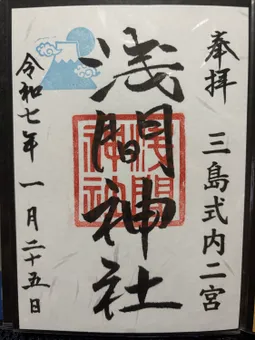 奉拝
三島式内二宮
浅間神社
浅間神社
令和七年一月二十五日